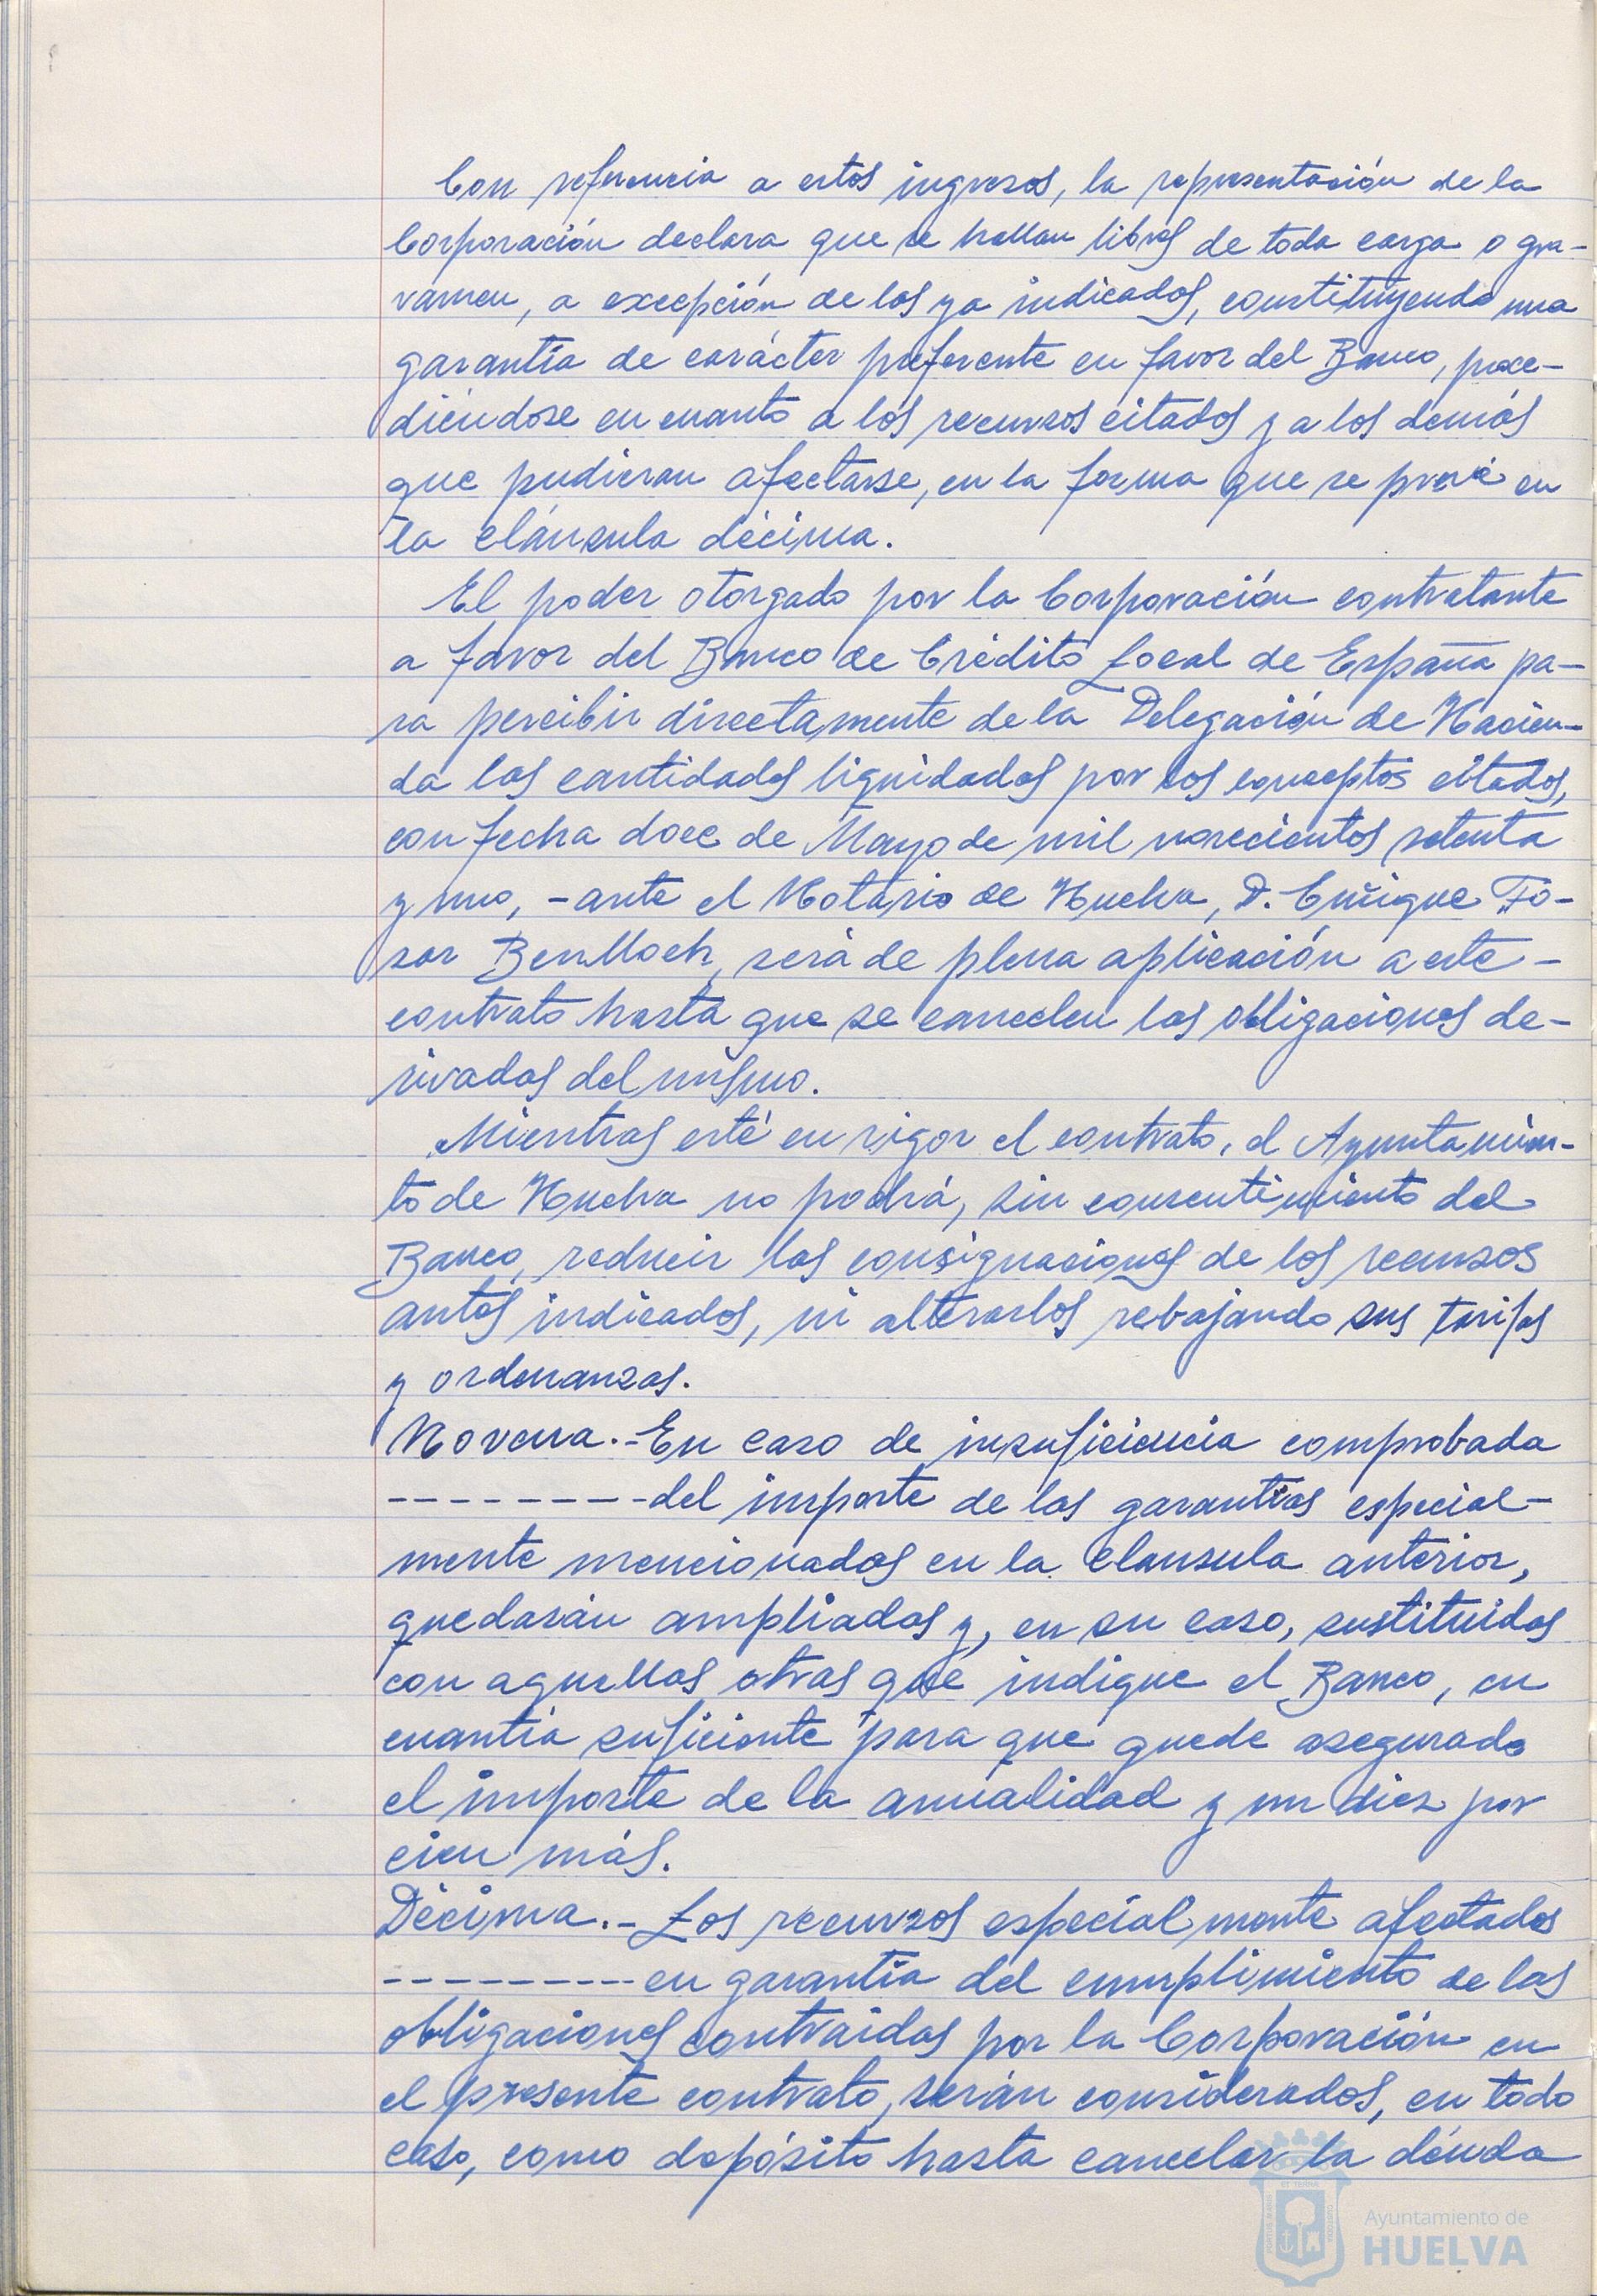 Con referencia a estos ingresos, la representación de la
Corporación declara que se hallan libres de toda carga o gra-
vamen, a excepción de los ya indicados, constituyendo una
garantía de carácter preferente en favor del Banco, proce-
diéndose en cuanto a los recursos citados y a los demás
que pudieran afectarse, en la forma que se prevé en
la cláusula décima.
El poder otorgado por la Corporación contratante
a favor del Banco de Crédito Local de España pa-
ra percibir directamente de la Delegación de Hacien-
da las cantidades liquidadas por los conceptos citados,
con fecha doce de Mayo de mil novecientos setenta
y uno, - ante el Notario de Huelva, D. Enrique Fo-
sar Benlloch, será de plena aplicación a este -
contrato hasta que se cancelen las obligaciones de-
rivadas del mismo.
Mientras esté en vigor el contrato, el Ayuntamien-
to de Huelva no podrá, sin consentimiento del
Banco, reducir las consignaciones de los recursos
antes indicados, ni alterarlos rebajando sus tarifas
y ordenanzas.
Novena.- En caso de insuficiencia comprobada
--------- del importe de las garantías especial-
mente mencionadas en la clausula anterior,
quedarán ampliadas y, en su caso, sustituidas
con aquellas otras que indique el Banco, en
cuantía suficiente para que quede asegurado
el importe de la anualidad y un diez por
cien más.
Décima.- Los recursos especialmente afectados
--------- en garantía del cumplimiento de las
obligaciones contraidas por la Corporación en
el presente contrato, serán considerados, en todo
caso, como depósito hasta cancelar la deuda
Ayuntamiento de
HUELVA